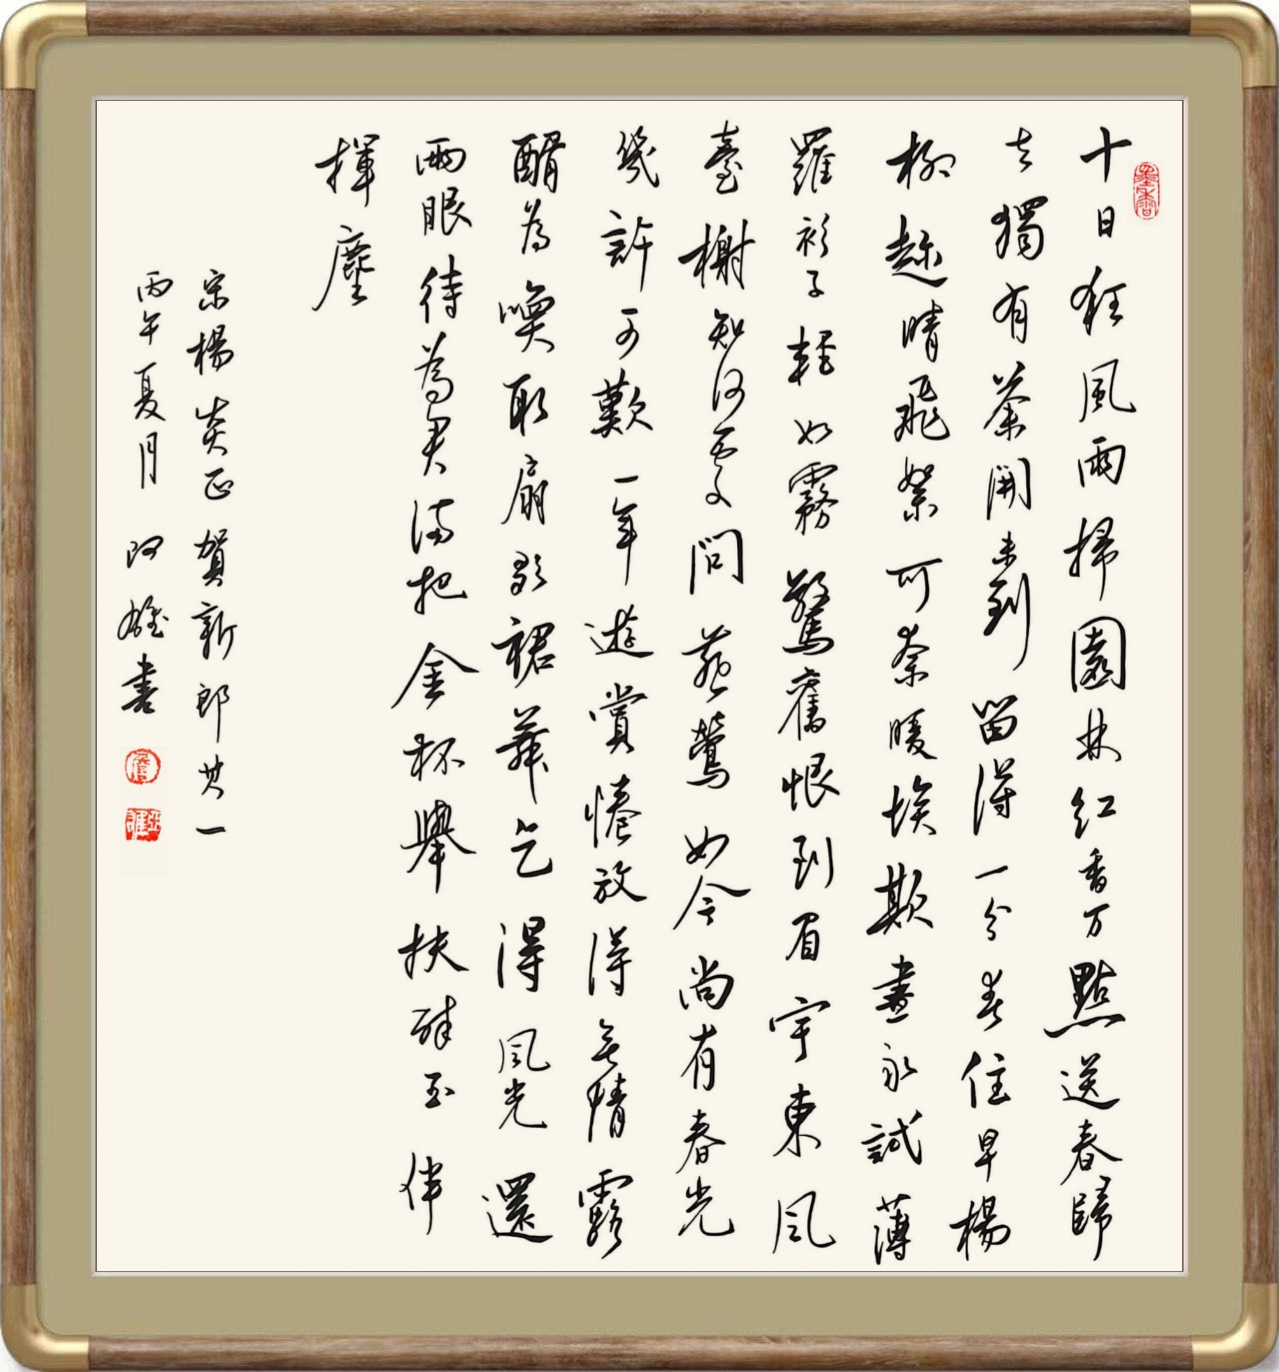 墨香
十日狂風雨掃園林紅香万點送春歸
去獨有荼開未到留得一分春住早楊
柳趂晴飛絮可奈暖埃欺晝永試薄
羅衫子輕如霧驚舊恨到眉宇東風
臺榭知何處問燕鶯如今尚有春光
幾許可歎一年遊賞倦放得無情露
醑為喚取扇歌裙舞乞得風光還
兩眼待為君滿把金杯舉扶醉玉伴
揮麈
宋楊炎正賀新郎其一
丙午夏月 阿雄書